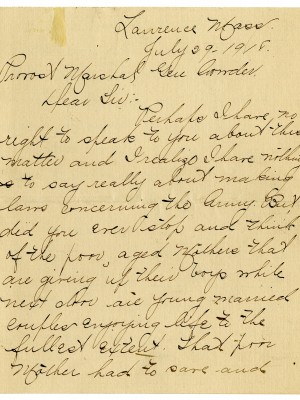 Lawrence Mass.
July 29-1918.
Provost Marshal Gen Crowder.
Dear Sir:-
Perhaps I have no
right to speak to you about this
matter and I realize I have nothing
to say really about making
laws concerning the Army. But
did you ever stop and think
of the poor, aged Mothers that
are giving up their boys while
next door are young married
couples enjoying life to the
fullest extent. That poor
Mother had to save and